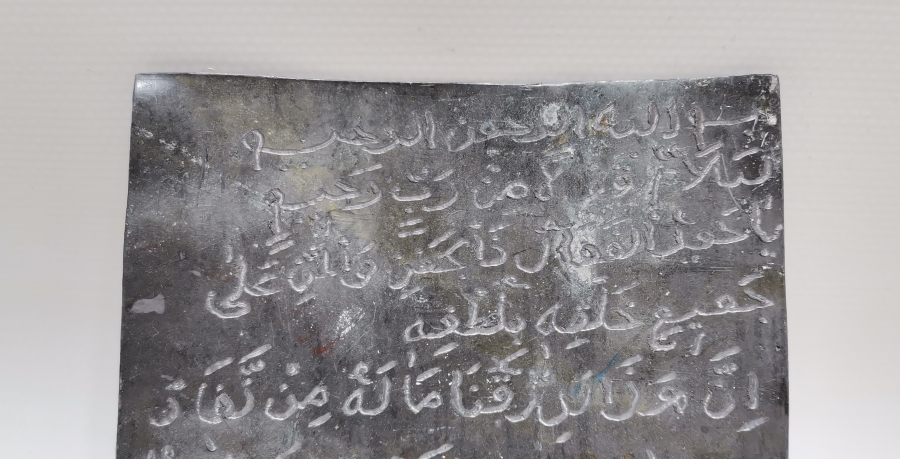 بسم الله الرحمن الرحيم
سَلَامٌ قَوْلًا مِنْ رَبٍّ رَحِيمٍ
يا حَمِيدُ الفعال ذَا المَنِّ عَلَى
جَمِيعِ خَلقِهِ بِلُطفِهِ
اِنَّ هَذَا لَرِزْقُنَا مَا لَهُ مِنْ نَّفَادٍ